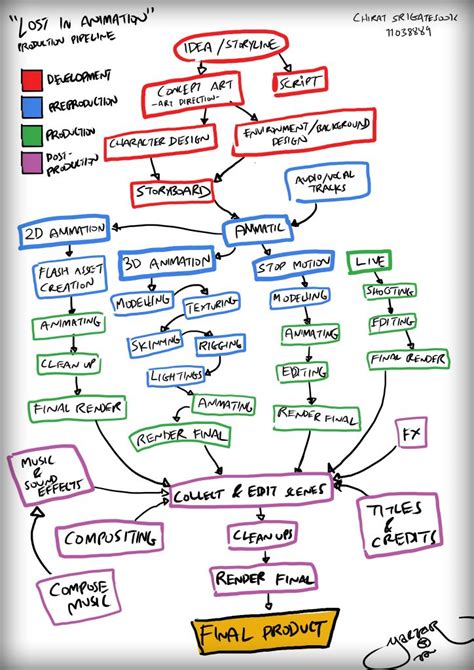 "LOST IN ANIMATION"
PRODUCTION PIPELINE
CHIRAT SRIGATESOOK
11038889
DEVELOPMENT
PREPRODUCTION
PRODUCTION
POST-
PRODUCTION
IDEA / STORYLINE
CONCEPT ART
-ART DIRECTION-
SCRIPT
CHARACTER DESIGN
ENVIRONMENT/BACKGROUND
DESIGN
STORYBOARD
AUDIO/VOCAL
TRACKS
2D ANIMATION
ANIMATIC
FLASH ASSET
CREATION
3D ANIMATION
STOP MOTION
LIVE
MODELLING
TEXTURING
MODELLING
SHOOTING
ANIMATING
SKINNING
RIGGING
ANIMATING
EDITING
CLEAN UP
LIGHTINGS
EDITING
FINAL RENDER
FINAL RENDER
ANIMATING
RENDER FINAL
RENDER FINAL
FX
MUSIC
&
SOUND
EFFECTS
COLLECT & EDIT SCENES
COMPOSITING
CLEAN UPS
TITLES
&
CREDITS
COMPOSE
MUSIC
RENDER FINAL
FINAL PRODUCT